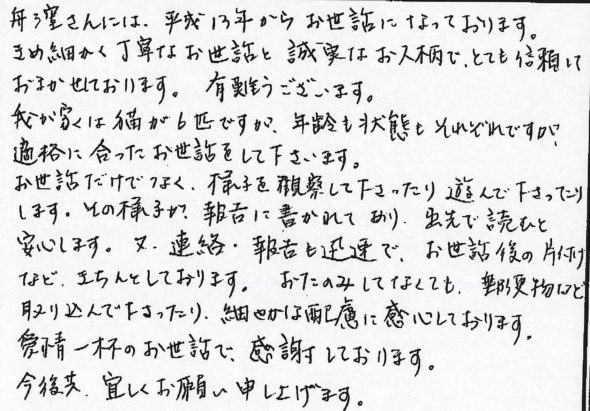 さんには、平成13年からお世話になっております。
きめ細かく丁寧なお世話と誠実なお人柄で、とても信頼して
おまかせしております。有難うございます。
我が家は猫が6匹ですが、年齢も状態もそれぞれですが、
適格に合ったお世話をして下さいます。
お世話だけでなく、様子を観察して下さったり遊んで下さったり
します。その様子が、報告に書かれてあり、出先で読むと
安心します。又、連絡・報告も迅速で、お世話後の片付け
など、きちんとしております。おたのみしてなくても、郵便物など
取り込んで下さったり、細やかな配慮に感心しております。
愛情一杯のお世話で、感謝しております。
今後共、宜しくお願い申し上げます。